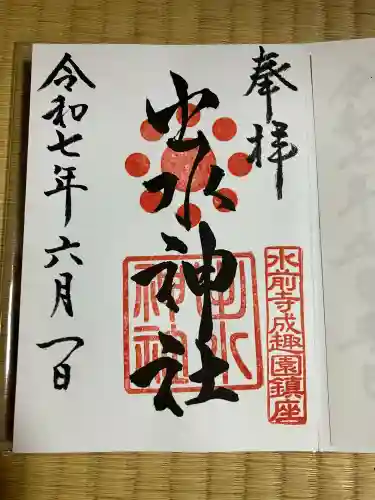 奉拝
水前寺成趣園鎮座
出水神社
出水神社
令和七年六月一日